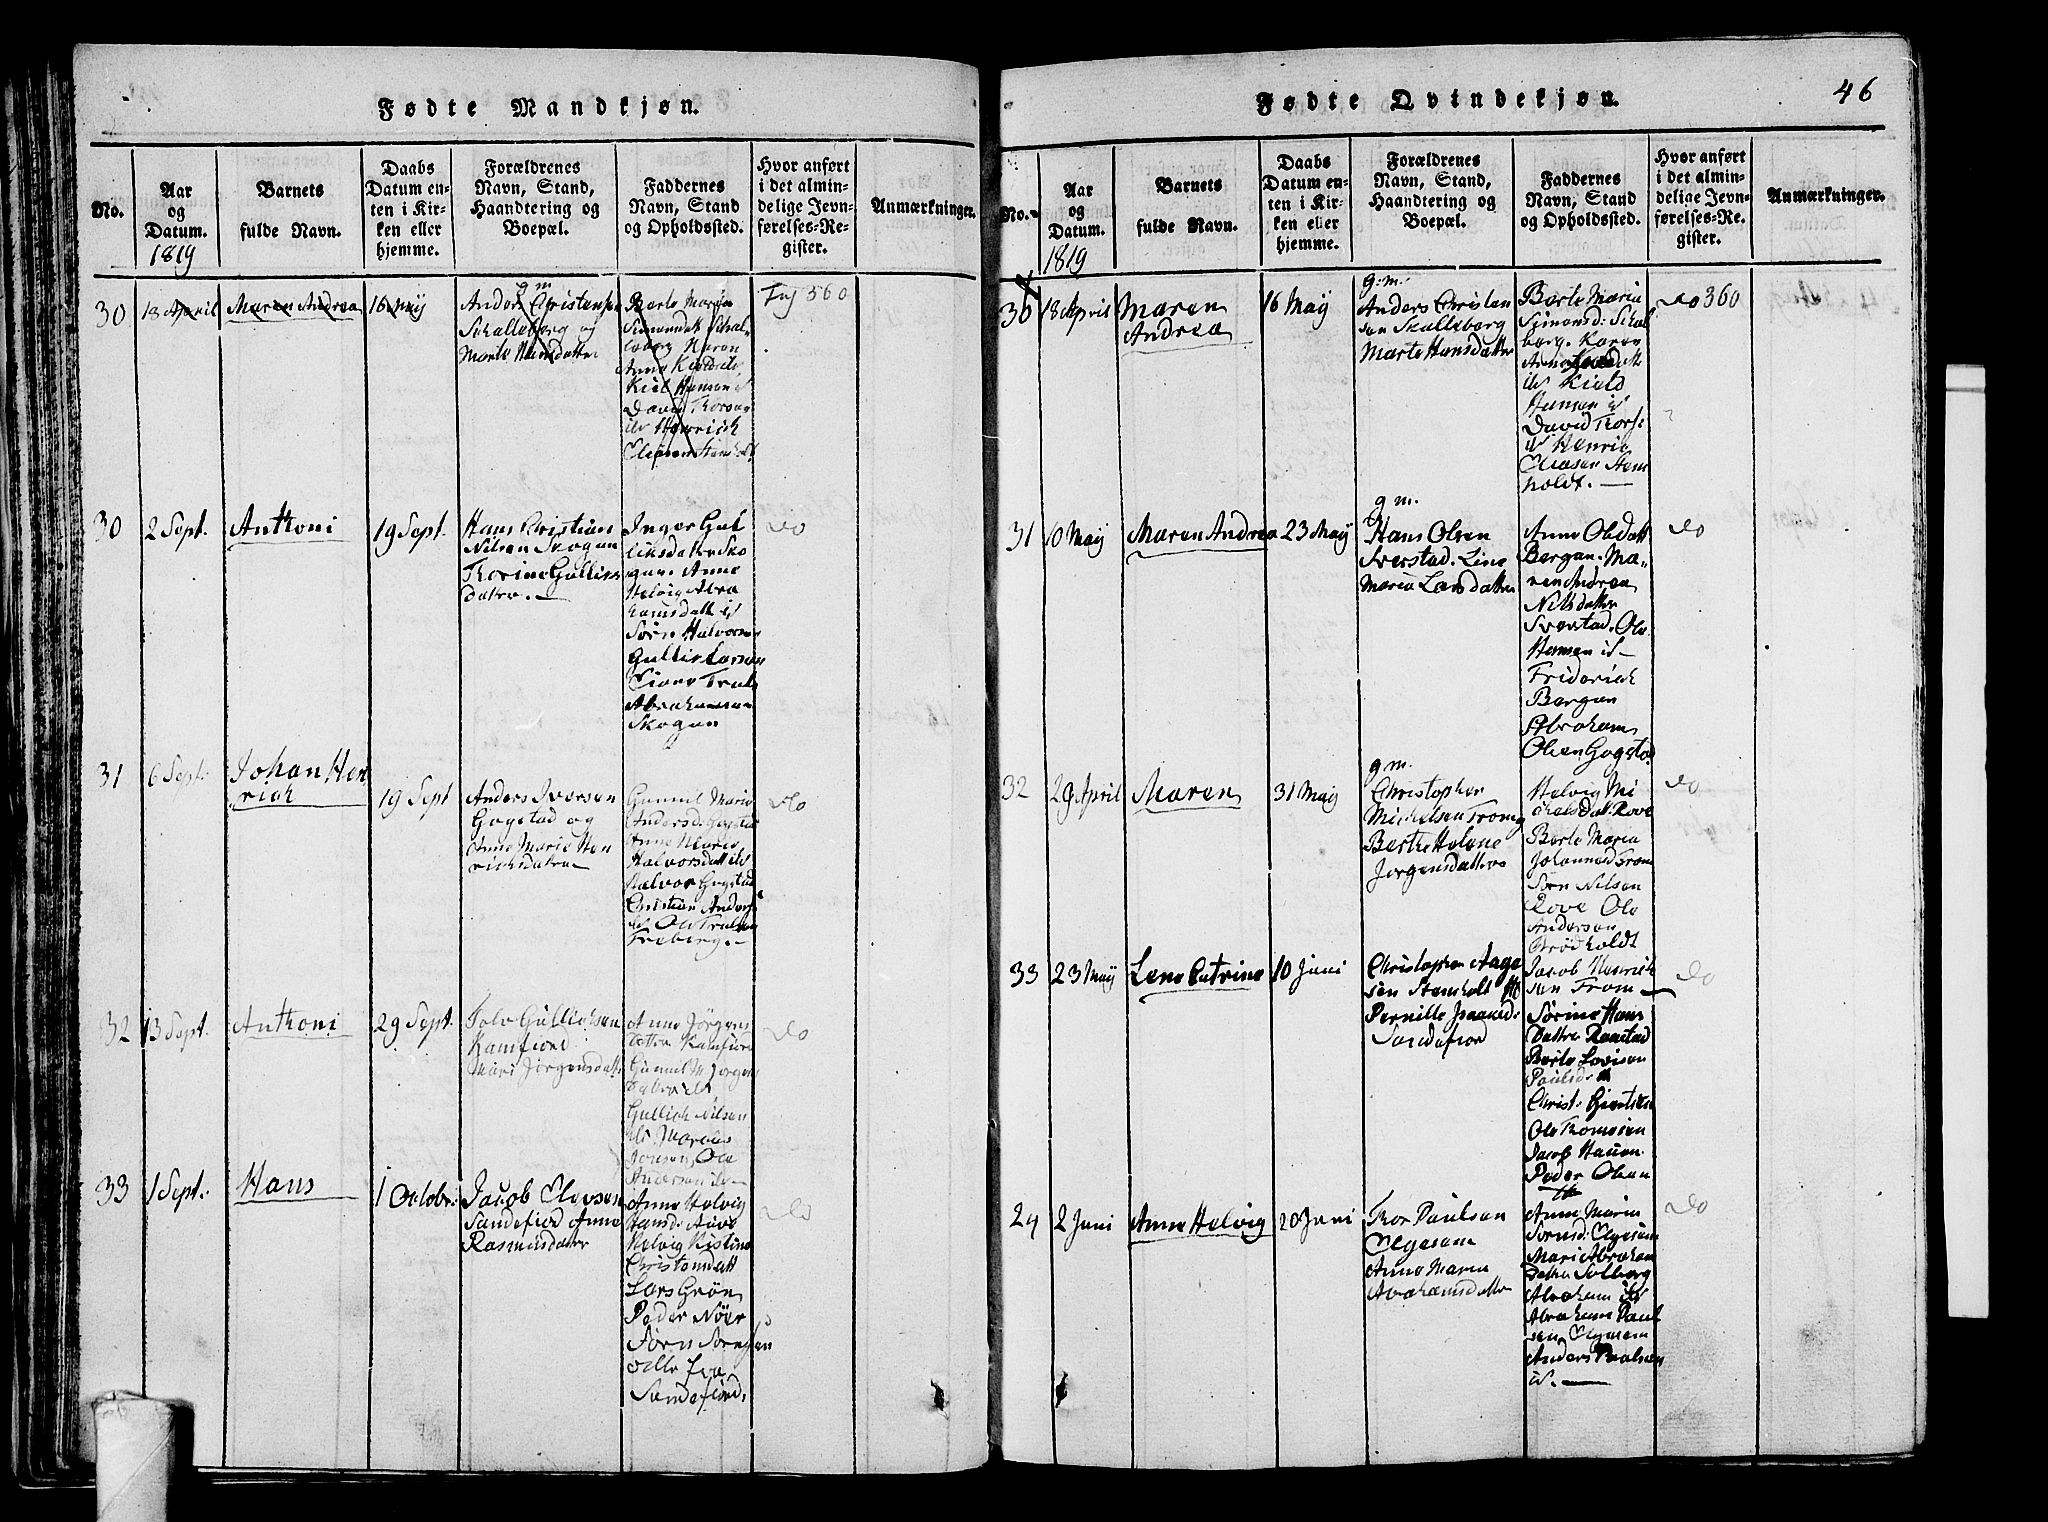 Fødte Mandkjøn.
No.
Aar
og
Datum.
1819
Barnets
fulde Navn.
Daabs
Datum en-
ten i Kir-
ken eller
hjemme.
Forældrenes
Navn, Stand,
Haandtering og
Boepæl.
Faddernes
Navn, Stand
og Opholdssted.
Hvor anført
i det almin-
delige Jevn-
førelses-Re-
gister.
Anmærkninger.
30
18 April
Maren Andrea
16 Maÿ
g m
Anders Christense
Schalleberg og
Marte Hansdatter
Berte Maria
Simensdt Schal
leberg Karen
Anne
Kield Hansen
David Thorsen
ib Henrich
Eliasen
560
30
2 Sept.
Anthoni
19 Sept.
Hans Christian
Nilsen Skogan
Thorine Gullix
datre.
Inger Gul
liksdatre Sko
gan Anne
Helvig Abra
hamsdatt
Sørn Halvorse
Gullix Larsen
Truls
Abrahamsen
Skogan
do
31
6 Sept.
Johan Hen
rich
19 Sept
Anders Iversen
Gogstad og
Anne Marie Hen
richsdatre
Gunnil Marie
Andersd: Gogstad
Anne Marie
Halvorsdatt ib
Halvor Gogstad
Christian Anders
Ole Truls
Freberg.
do
32
13 Sept.
Anthoni
29 Sept.
Gullichsen
Kamfiord
Mari Jørgensdatt
Anne Jørgens
datre Kamfiord
Gunnil M Jørgens
Gullich Nilsen
Jonsen, Ole
Andersen ib
do
33
1 Sept.
Hans
1 Octobr:
Jacob Elevsen
Sandefiord Anne
Rasmusdatter
Anne Helvig
Hansd:
Helvig Kistine
Christensdatt
Lars Grøn
Peder Nöer
Sørn Sørensen
alle fra
Sandefiord.
do
Fødte Qvindekjøn.
46
No.
Aar
og
Datum.
1819
Barnets
fulde Navn.
Daabs
Datum en-
ten i Kir-
ken eller
hjemme.
Forældrenes
Navn, Stand,
Haandtering og
Boepæl.
Faddernes
Navn, Stand
og Opholdssted.
Hvor anført
i det almin-
delige Jevn-
førelses-Re-
gister.
Anmærkninger.
30
18 April
Maren
Andrea
16 Maÿ
g: m.
Anders Christen
sen Skalleberg
Marte Hansdatter
Berte Maria
Simensd: Skal
berg. Karen
Anne
ib Kield
Hansen ib
David Thors:
ib Henric
Eliasen Stem
holdt.
do 360
31
10 Maÿ
Maren Andrea
23 Maÿ
g m.
Hans Olsen
Sverstad. Line
Maria Larsdatter
Anne Olsdatt
Bergan. Ma-
ren Andrea
Nilsdatter
Sverstad. Ole
Hansen ib
Friderich
Bergan
Abraham
Olsen Gogstad
do
32
29 April
Maren
31 Maÿ
g m.
Christopher
Michelsen From
Berthe Helene
Jørgensdatter
Helvig Mi
chelsdatt. Rove
Berte Maria
Johannesd From
Sørn Nilsen
Rove Ole
Andersen
holdt
do
33
23 Maÿ
Lene Catrine
10 Juni
Christopher Aage
sen Stemholt
Pernille Isaaksd:
Sandefiord
Jacob Henrich
sen From
Sørine Hans
datter Raastad
Berte Lovisen
Paulsd:
Christ: Giertsen
Ole Thomesen
Jacob Hauen
Peder Olsen
do
24
2 Juni
Anne Helvig
20 Juni
Thor Paulsen
Elgesem
Anne Maria
Abrahamsdatter
Anne Maria
Sørnsd: Elgesem
Mari Abraham
datter Solberg
Abraham ib
Abraham Paul
sen Elgesem
Anders Paulsen
ib.
do